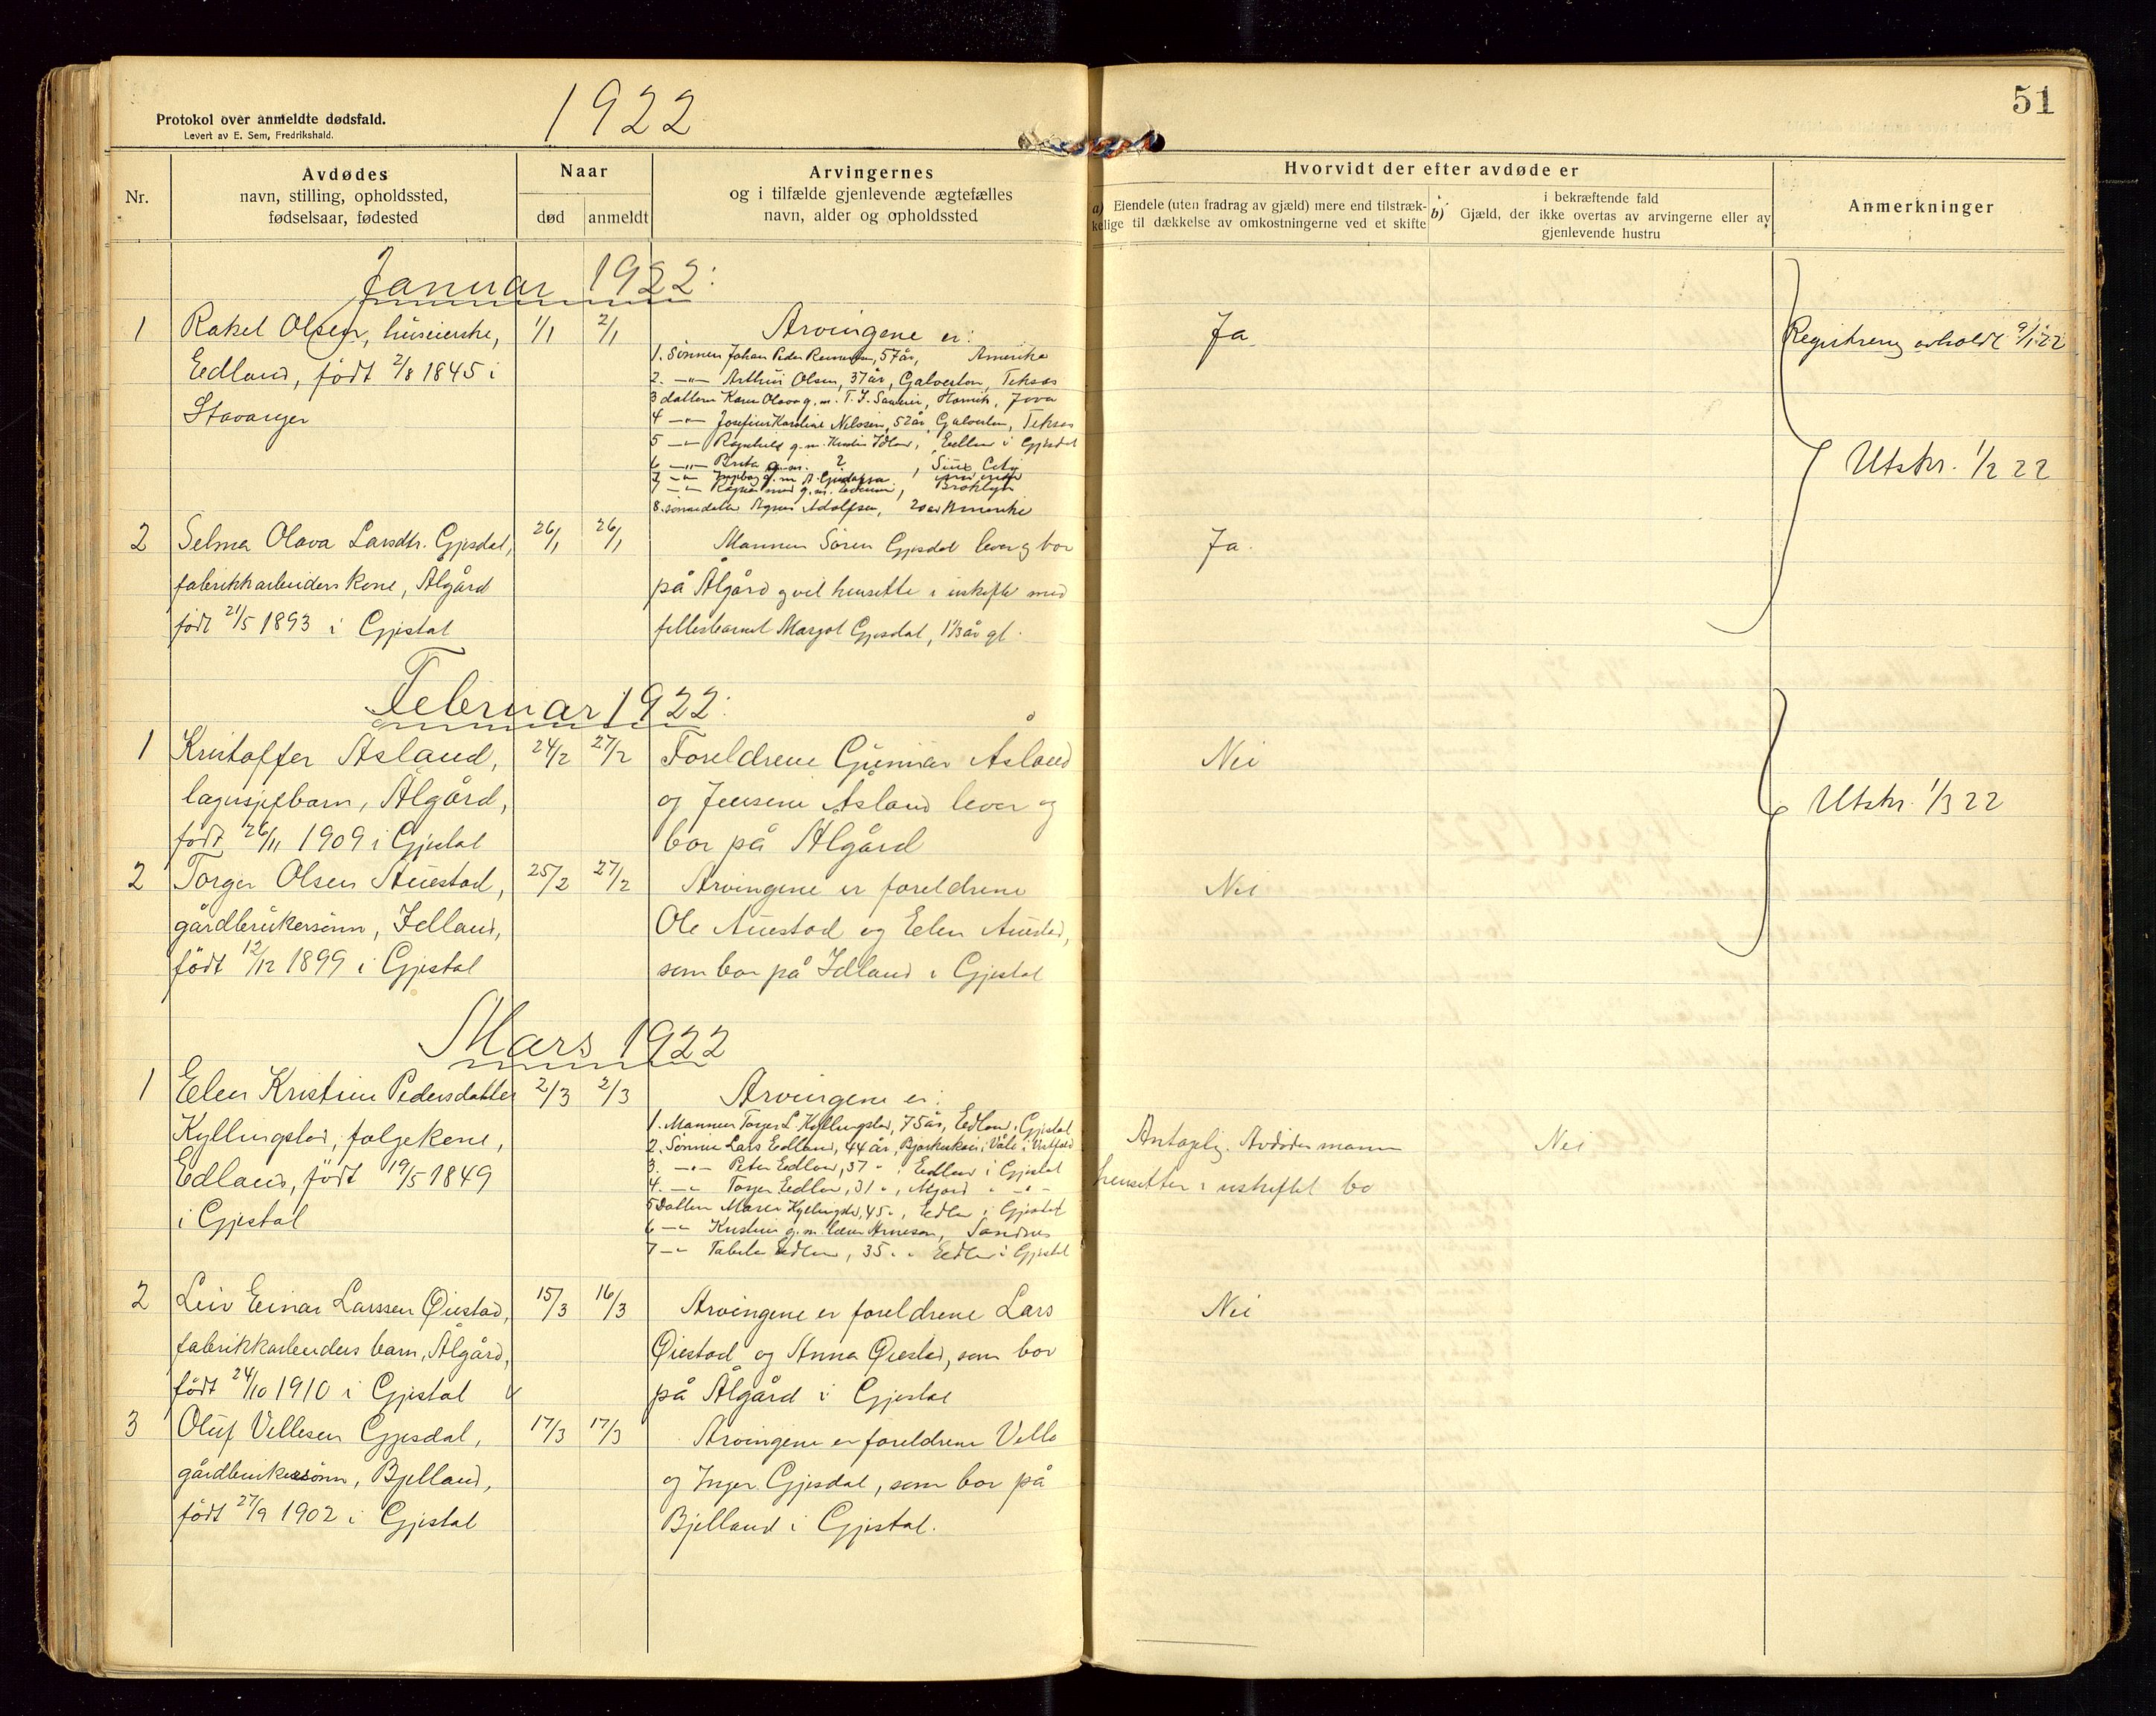 Protokol over anmeldte dødsfald.
Levert av E. Sem, Fredrikshald.
1922
51
Nr.
Avdødes
navn, stilling, opholdssted,
fødselsaar, fødested
Naar
død
anmeldt
Arvingernes
og i tilfælde gjenlevende ægtefælles
navn, alder og opholdssted
Hvorvidt der efter avdøde er
a) Eiendele (uten fradrag av gjæld) mere end tilstræk-
kelige til dækkelse av omkostningerne ved et skifte
i bekræftende fald
b) Gjæld, der ikke overtas av arvingerne eller av
gjenlevende hustru
Anmerkninger
Januar 1922:
1
Rakel Olsen, huseierske,
Edland, født 2/8 1845 i
Stavanger
1/1
2/1
Arvingene er:
1. Sønnen Johan Peder 57 år, Amerika
2. -"- Arthur Olsen, 37 år, Galveston, Teksas
3 datteren Karen Olava g. m. T. J. Hornik, Jova
4 -"- Josefine Karoline Nilssen, 52 år, Galveston, Teksas
5 -"- Ragnhild g. m. Edland i Gjestal
6 -"- Berta g. m. ?, Siux City
7 -"- g. m. Broklyn
8. sønnedatter Adolfsen, 20 år Amerika
Ja
Registrering avholdt 9/1 22
Utskr. 1/2 22
2
Selma Olava Larsdtr. Gjesdal,
fabrikkarbeiders kone, Ålgård
født 21/5 1893 i Gjestal
26/1
26/1
Mannen Sören Gjesdal lever og bor
på Ålgård og vil hensette i uskifte med
fellesbarnet Margot Gjesdal, 1 1/3 år gl.
Ja.
Februar 1922:
1
Kristoffer Åsland,
lagersjefbarn, Ålgård,
født 26/11 1909 i Gjestal
24/2
27/2
Foreldrene Gunnar Åsland
og Jensine Åsland lever og
bor på Ålgård
Nei
Utskr. 1/3 22
2
Torger Olsen Auestad,
gårdbrukersønn, Idland,
født 12/12 1899 i Gjestal
25/2
27/2
Arvingene er foreldrene
Ole Auestad og Elen Auestad,
som bor på Idland i Gjestal
Nei
Mars 1922
1
Elen Kristine Pedersdatter
Kyllingstad, følgekone,
Edland, født 19/5 1849
i Gjestal
2/3
2/3
Arvingene er:
1. Mannen Torger L. Kyllingstad, 75 år, Edland i Gjestal
2. Sønnen Lars Edland, 44 år, i Våle i Vestfold
3. -"- Peter Edland, 37 ", Edland i Gjestal
4. -"- Torger Edland, 31 ", Mjord " -"-
5 Datteren Maria Kyllingstad, 45 ", Edland i Gjestal
6 -"- Kristine g. m. Arneson, Sandnes
7 -"- Tabita Edland, 35 " " Edland i Gjestal
Antagelig. Avdødes mann
hensetter i uskiftet bo
Nei
2
Leiv Einar Larssen Øiestad,
fabrikkarbeiders barn, Ålgård,
født 24/10 1910 i Gjestal
15/3
16/3
Arvingene er foreldrene Lars
Øiestad og Anna Øiestad, som bor
på Ålgård i Gjestal
Nei
3
Oluf Villesen Gjesdal,
gårdbrukersønn, Bjelland,
født 27/9 1902 i Gjestal
17/3
17/3
Arvingene er foreldrene Ville
og Inger Gjesdal, som bor på
Bjelland i Gjestal.